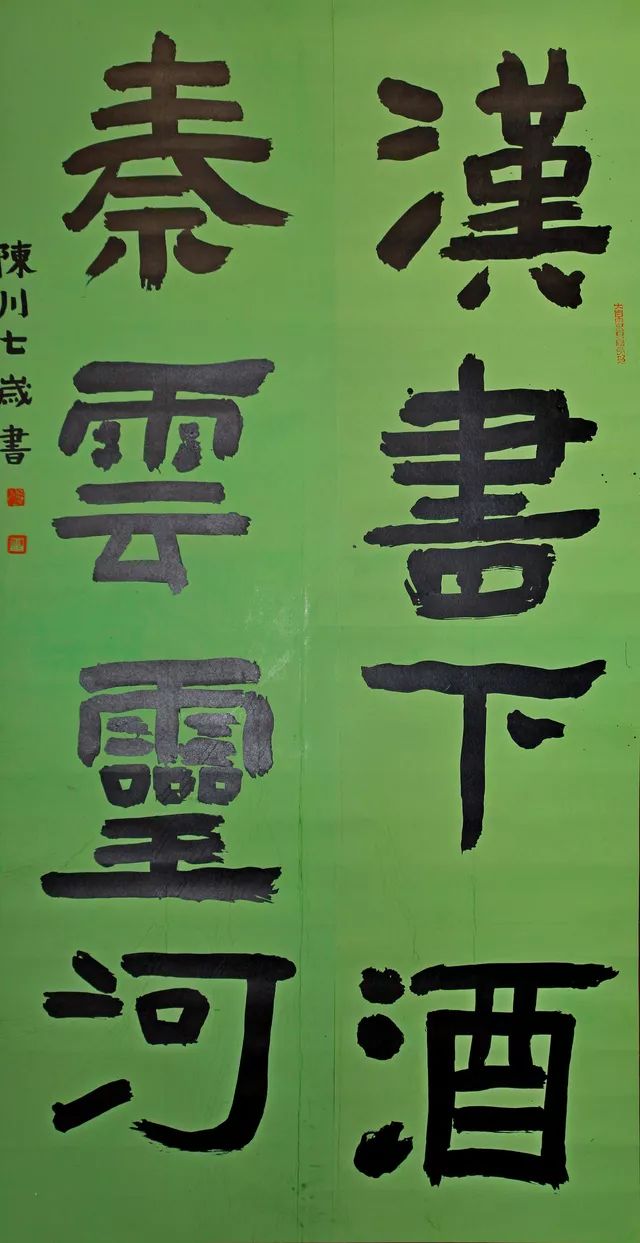 漢書下酒
秦雲靈河
陳川七歲書